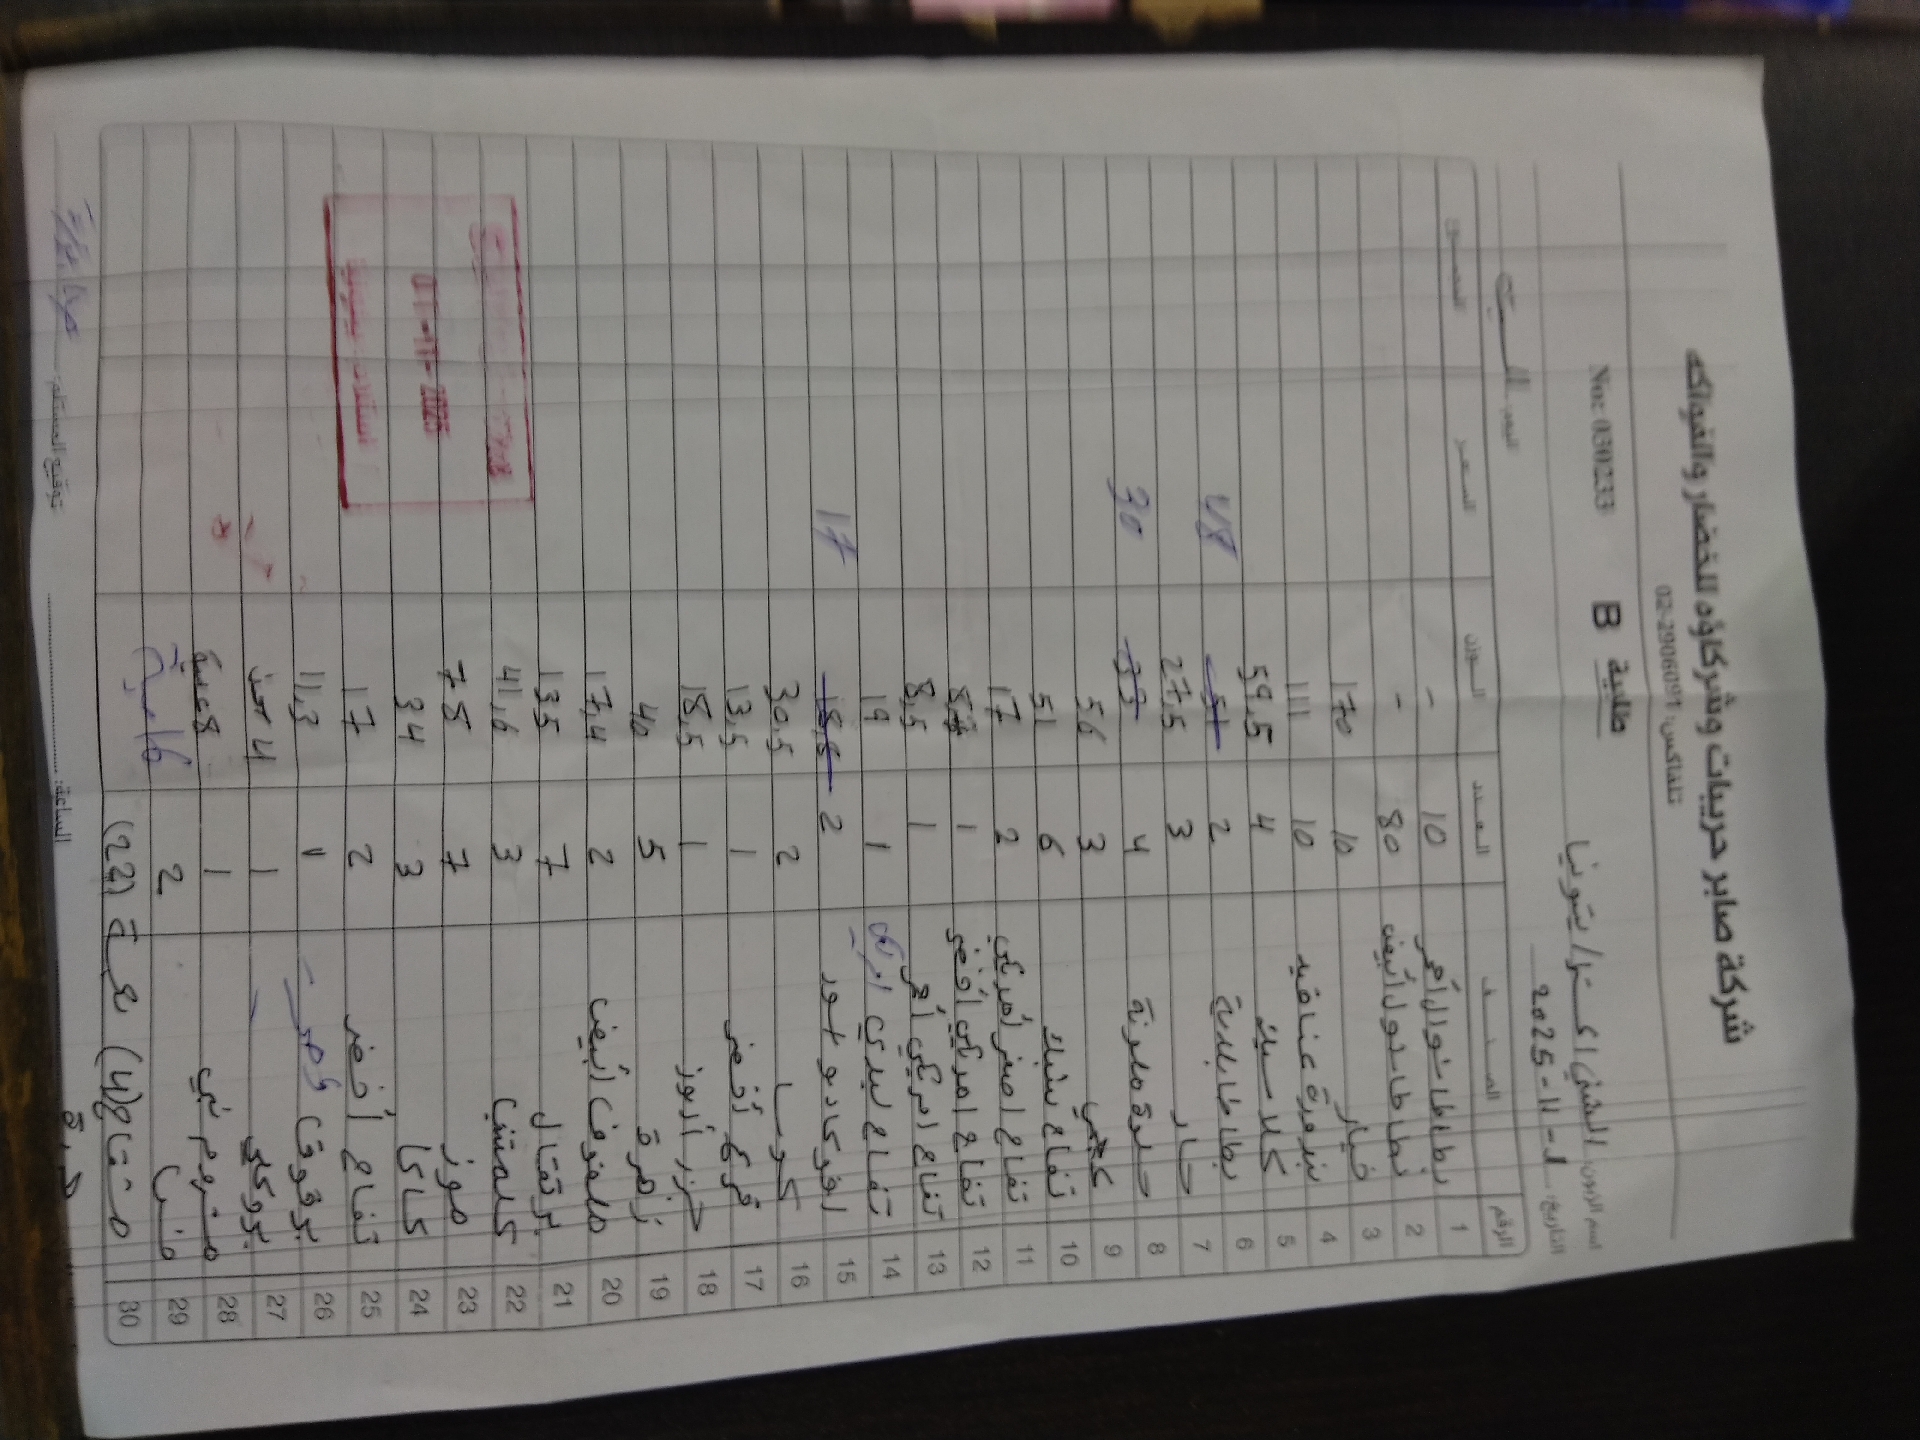 شركة صابر حريبات وشركاؤه للخضار والفواكه
تلفاكس: 02-2906091
No: 030233 طلبية B
اسم الزبون: الشني اكسترا / بيتونيا
التاريخ: 1-11-2025 اليوم: السبت
الرقم الصنف العدد الوزن السعر المجموع
1 بطاطا نوال أحمر 10 -
2 بطاطا نوال أبيض 80 -
3 خيار 10 170
4 بندورة عناقيد 10 111
5 كلاسيك 4 59,5
6 بطاطا بلدية 2 51 48
7 حار 3 27,5
8 حلوة ملونة 4 33 30
9 3 56
10 تفاح 6 51
11 تفاح اصفر أمريكي 2 17
12 تفاح امريكي أخضر 1
13 تفاح امريكي أحمر 1 8,5
14 تفاح سكري 1 19
15 افوكادو 2 18,5 17
16 كوسا 2 30,5
17 قرع أخضر 1 13,5
18 جزر 1 18,5
19 زهرة 5 40
20 ملفوف أبيض 2 17,4
21 برتقال 7 135
22 كلمنتينا 3 41,6
23 موز 7 78
24 كاكا 3 34
25 تفاح أخضر 2 17
26 برقوق 11,3
27 بروكلي 1
28 مشروم بني 1 8 علبة
29 2
30 مشطاح (4) (22)
الساعة: توقيع المستلم:
01-11-2025